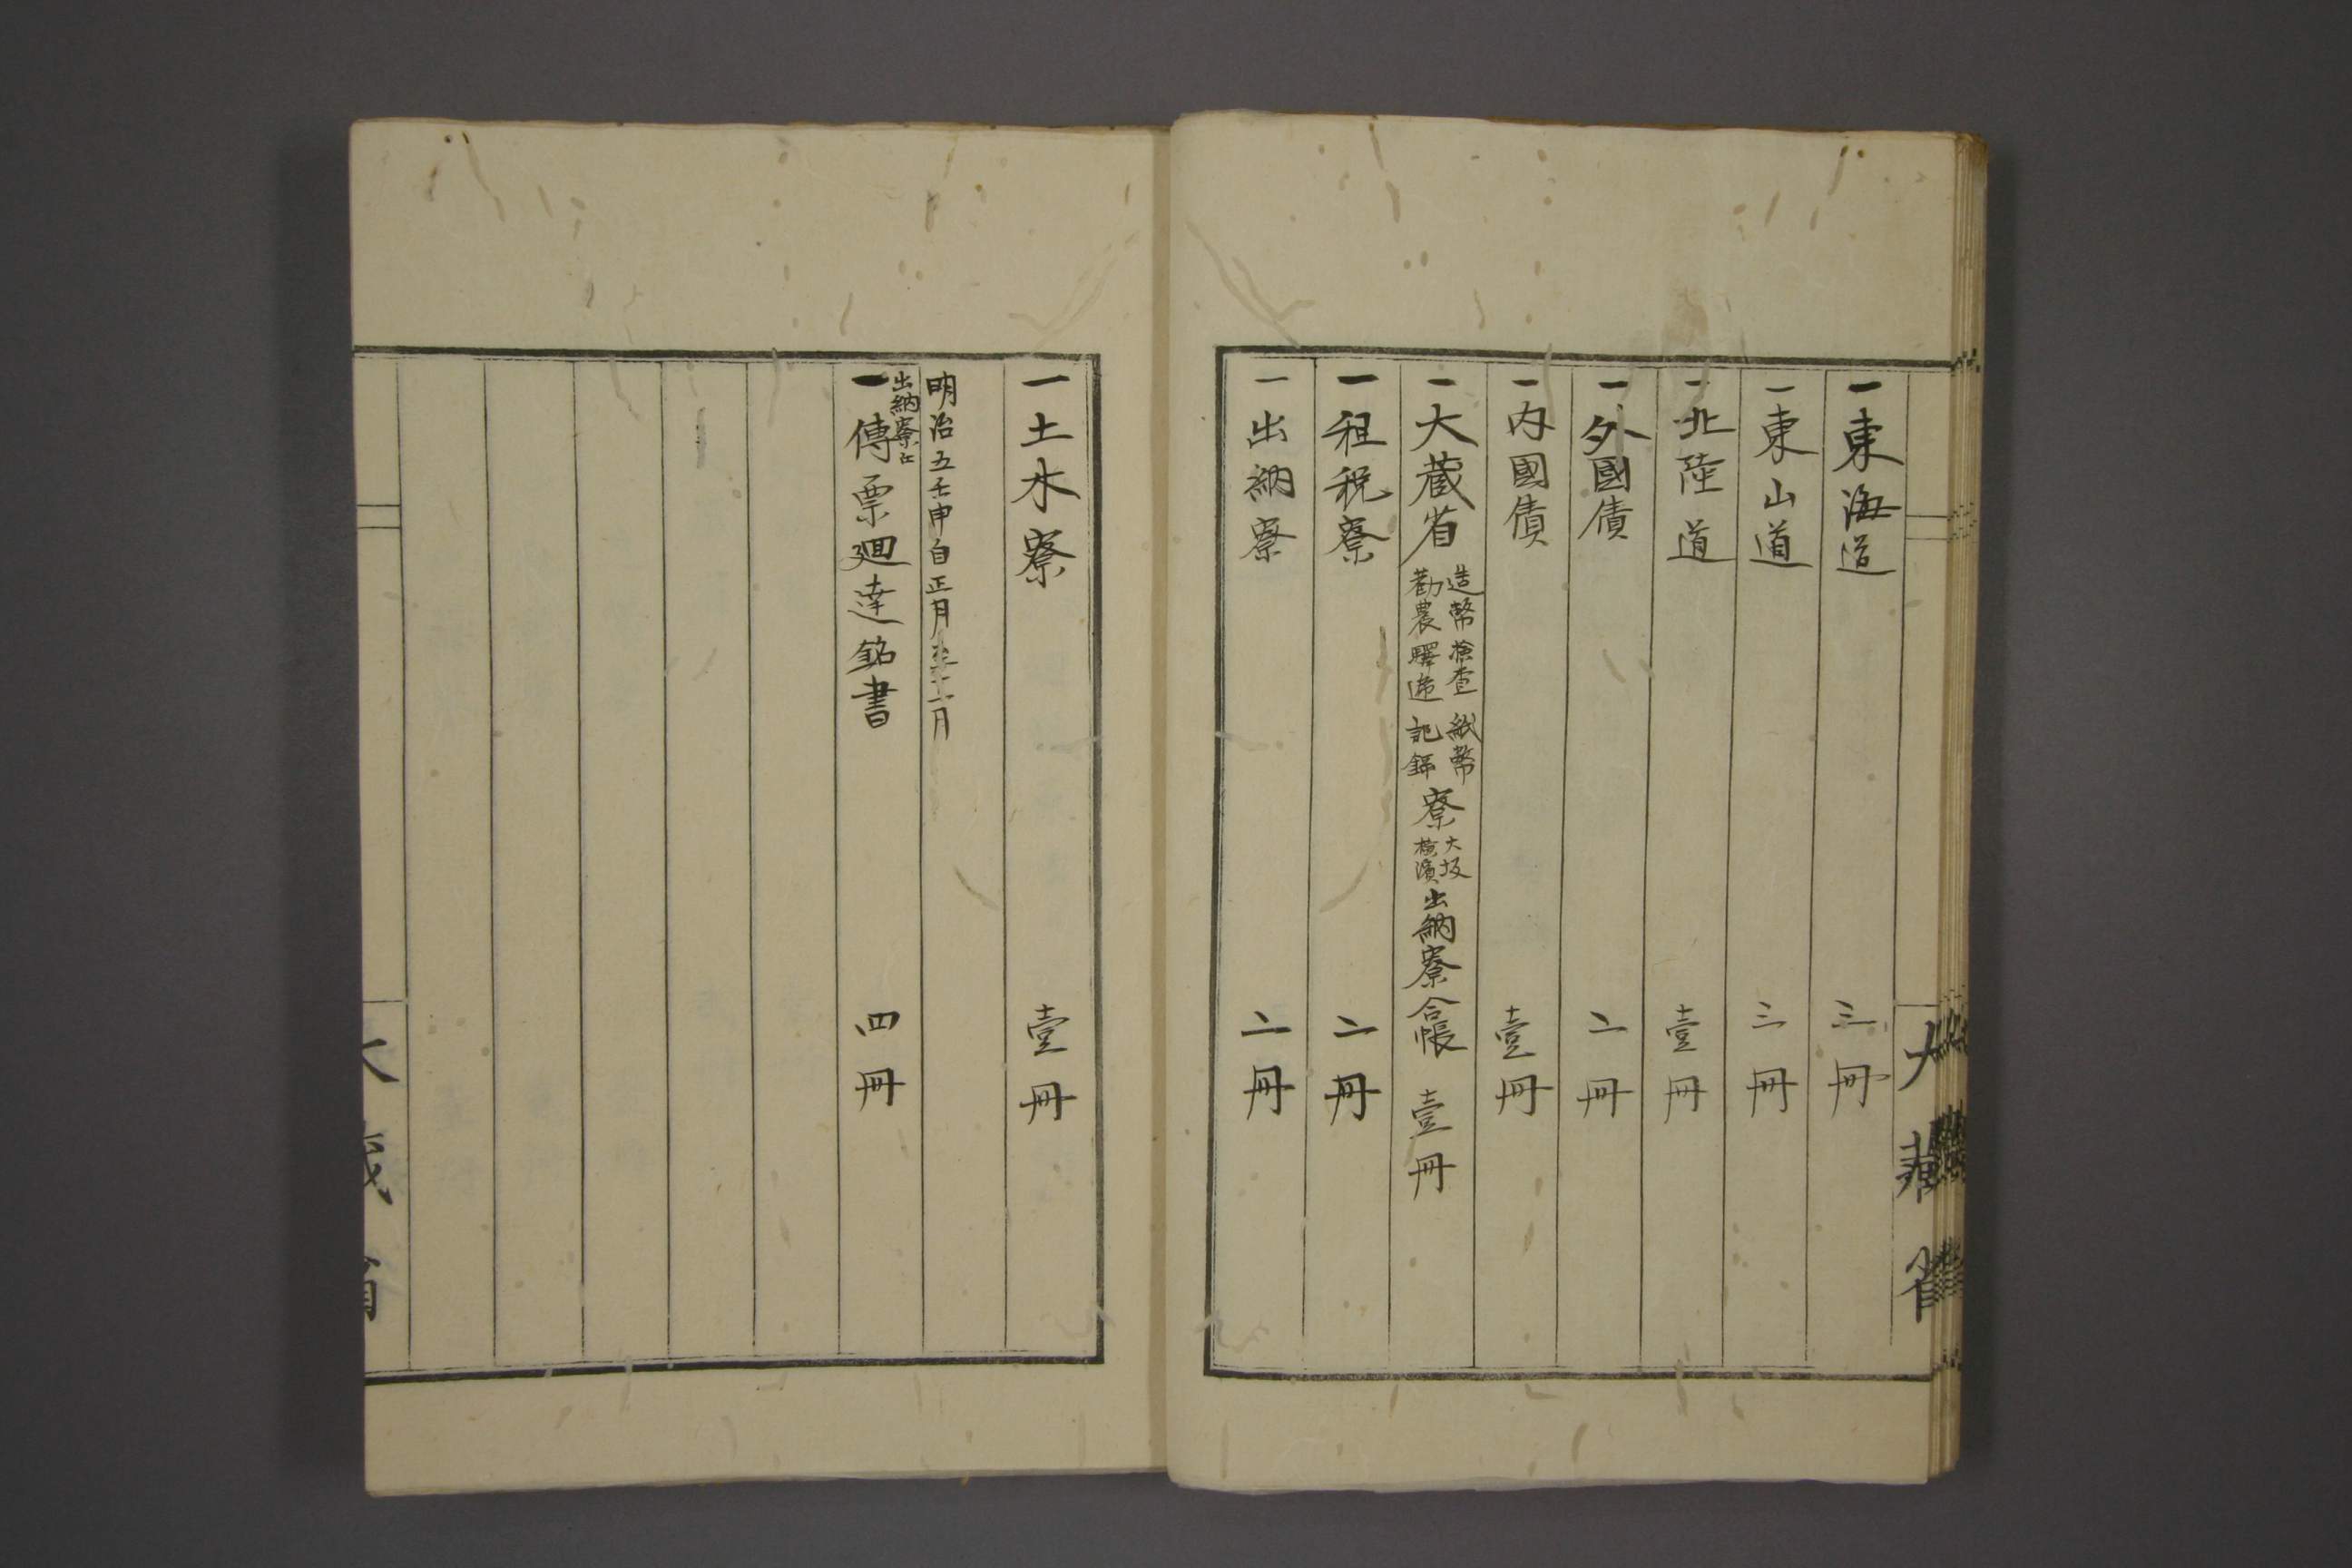 一東海道 三冊
一東山道 三冊
一北陸道 壹冊
一外國債 二冊
一内國債 壹冊
一大蔵省 造幣 検査 紙幣 勸農 驛逓 記録 寮 大坂 横濱 出納寮合帳 壹冊
一租税寮 二冊
一出納寮 二冊
大藏省
一土木寮 壹冊
明治五壬申自正月至十一月
出納寮江
一傳票廻達銘書 四冊